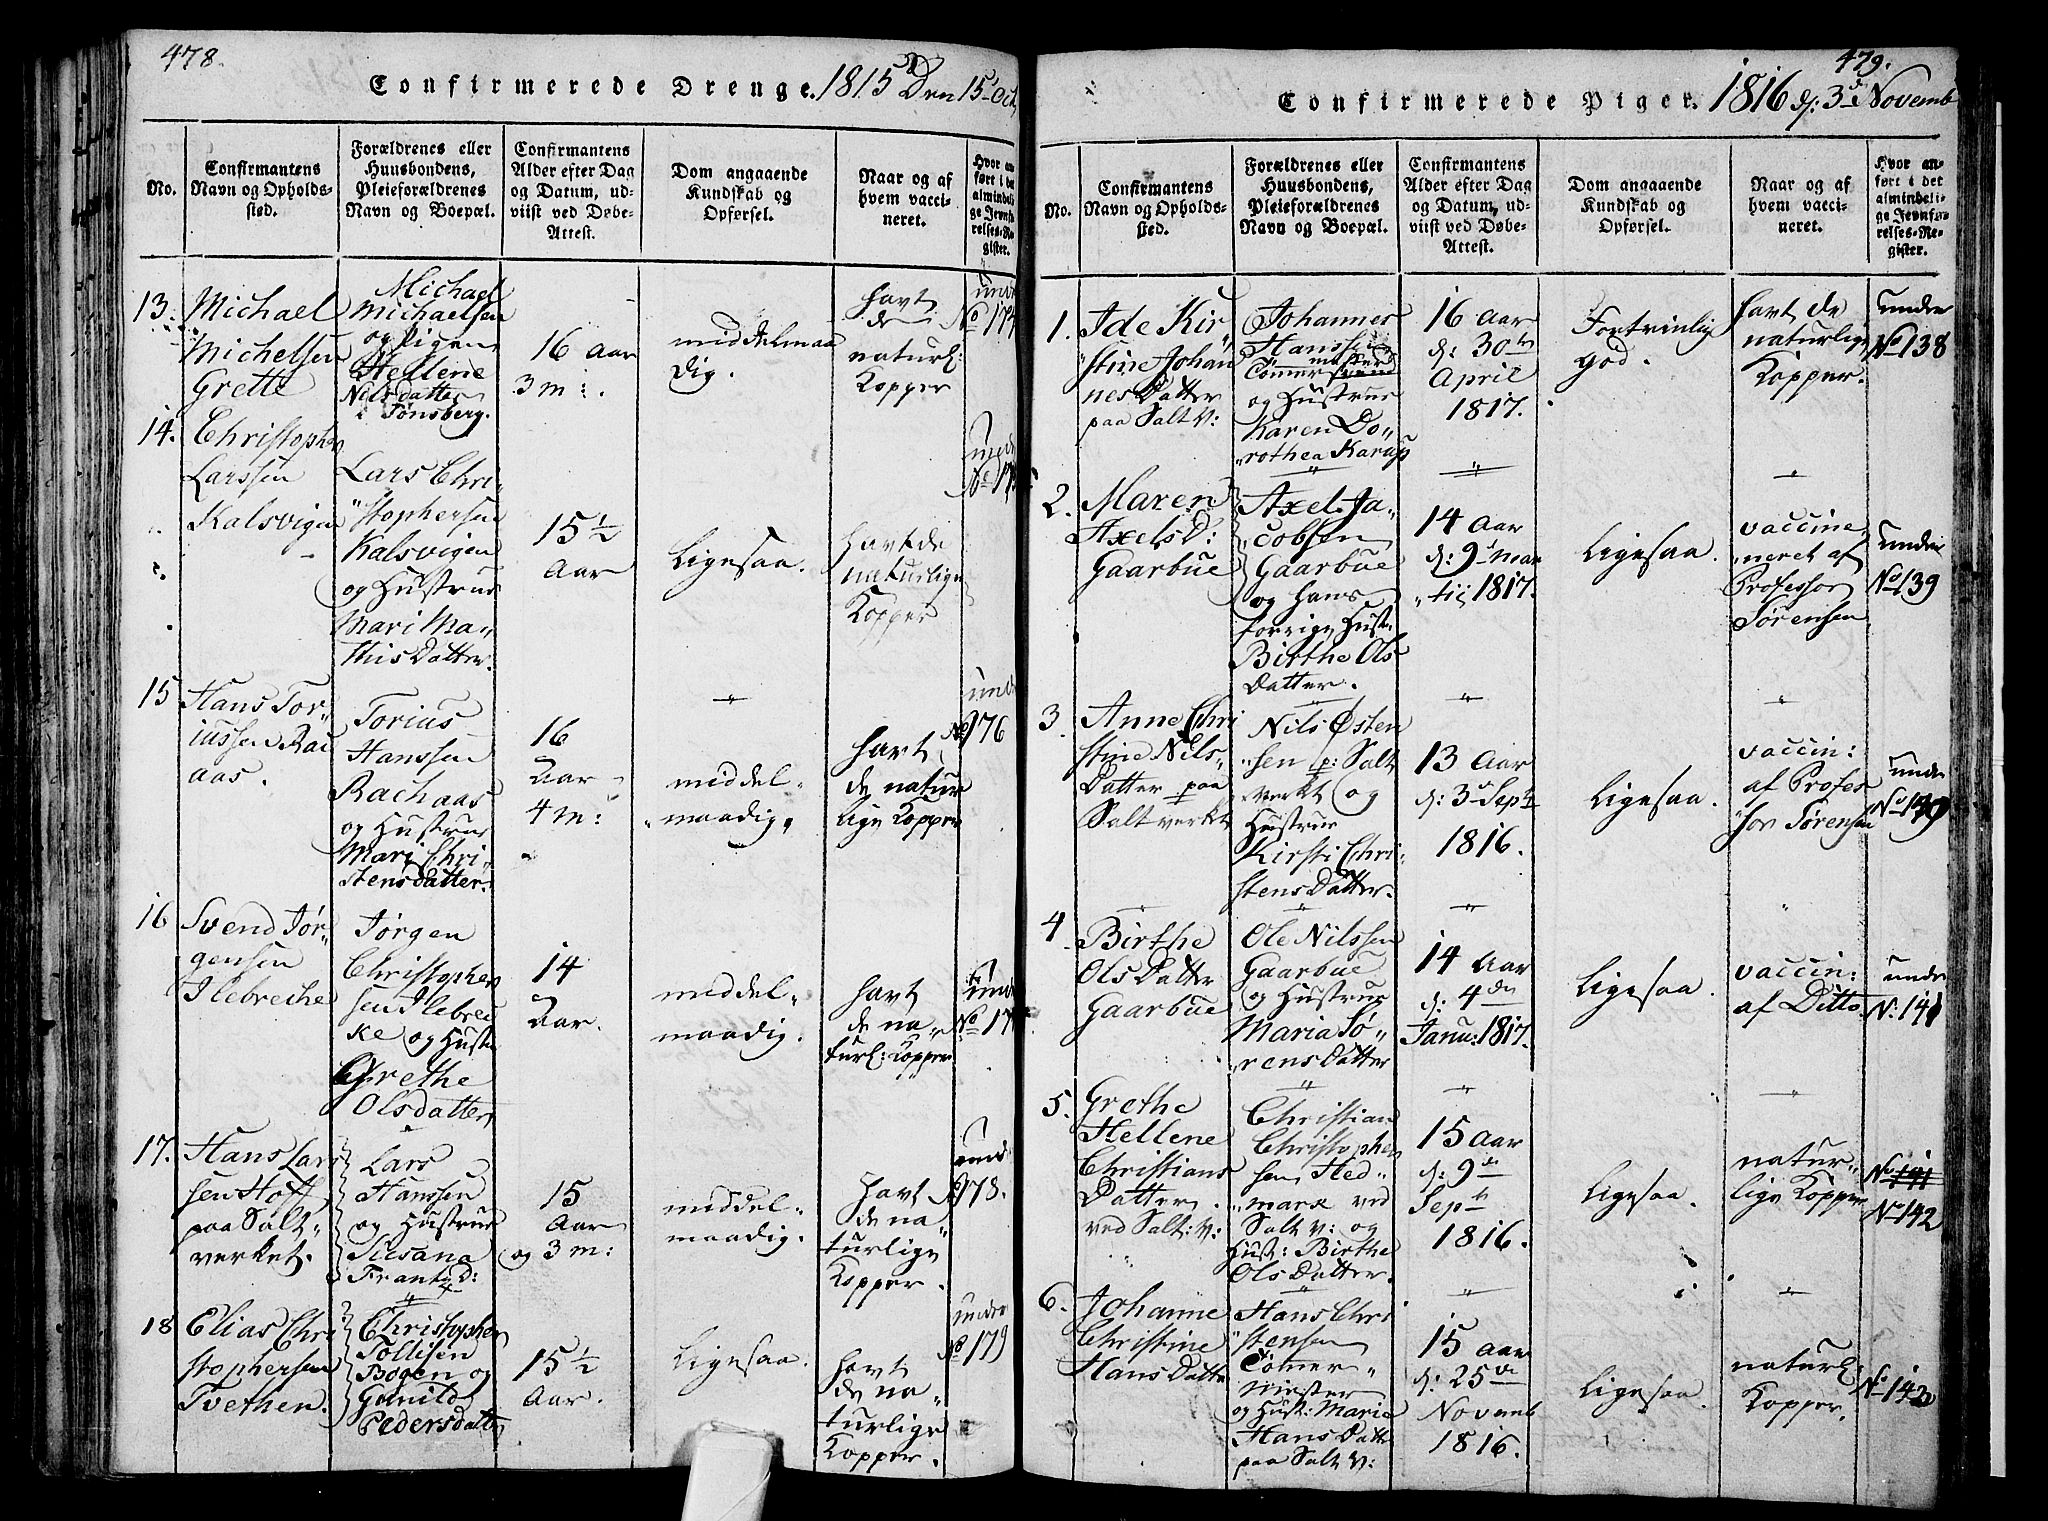 478.
Confirmerede Drenge. 1815 Den 15 Oct,
No.
Confirmantens
Navn og Opholds-
sted.
Forældrenes eller
Huusbondens,
Pleieforældrenes
Navn og Boepæl.
Confirmantens
Alder efter Dag
og Datum, ud-
viist ved Døbe-
Attest.
Dom angaaende
Kundskab og
Opførsel.
Naar og af
hvem vacci-
neret.
Hvor an-
ført i det
almindeli-
ge Jevnfø-
relses-Re-
gister.
13.
Michael
Michelsen
Grette
Michael
Michaelsen
og Pigen
Hellene
Nilsdatter
i Tønsberg.
16 Aar
3 m:
middelmaa
dig.
havt
de
naturl:
Kopper
14.
Christopher
Larssen
Kalsvigen
Lars Chri
"stophersen
Kalsvigen
og Hustrue
Mari Ma-
this Datter.
15 ½
Aar
Ligesaa.
havt de
naturlige
Kopper
15
Hans Tor-
iussen Rac
aas.
Torius
Hanssen
Rachaas
og Hustrue
Mari Chri-
stensdatter.
16
Aar
4 m:
middel-
maadig
havt
de natur
lige Kopper
976
16
Svend Jør-
gensen
Ilebreche
Jørgen
Christopher
sen Ilebrec
ke og Hustr
Grethe
Olsdatter
14
Aar.
middel-
maadig.
havt
de na-
turl: Kopper
17.
Hans Lars
sen Hoff
paa Salt-
verket.
Lars
Hanssen
og Hustrue
Susana
Frantz D:
15
Aar
og 3 m:
middel-
maadig.
havt
de na-
turlige
Kopper.
978.
18
Elias Chri
stophersen
Tvethen.
Christopher
Tollisen
Bogen og
Gunild
Pedersdatter
15 ½
Aar.
Ligesaa.
havt
de na-
turlige
Kopper.
under
No 179
479.
Confirmerede Piger. 1816 d: 3de Novemb
No.
Confirmantens
Navn og Opholds-
sted.
Forældrenes eller
Huusbondens,
Pleieforældrenes
Navn og Boepæl.
Confirmantens
Alder efter Dag
og Datum, ud-
viist ved Døbe-
Attest.
Dom angaaende
Kundskab og
Opførsel.
Naar og af
hvem vacci-
neret.
Hvor an-
ført i det
almindeli-
ge Jevnfø-
relses-Re-
gister.
1.
Ide Kir
"stine Johan
nes Datter
paa Salt V:
Johannes
Hanssen
Tømmer
og Hustrue
Karen Do-
"rothea Karup
16 Aar
d: 30te
April
1817.
Fortrinlig
god.
havt de
naturlige
Kopper.
under
No 138
2.
Maren
Axels D:
Gaarbue
Axel Ja-
"cobsen
Gaarbue
og hans
forrige Hust:
Birthe Ols
Datter.
14 Aar
d: 9de mar
"tii 1817.
Ligesaa.
vaccine
"neret af
Professor
Sørensen
under
No 139
3
Anne Chri
stine Nils-
Datter paa
Saltverket
Nils Østen
"sen p: Salt
verkt og
Hustrue
Kirsti Chri-
stens Datter.
13 Aar
d: 3de Septr
1816.
Ligesaa.
vaccin:
af Profes
"sor Sørensen
under
4
Birthe
Ols Datter
Gaarbue
Ole Nilssen
Gaarbue
og Hustrue
Maria Sø-
"rens Datter
14 Aar
d: 4de
Janu: 1817.
Ligesaa.
vaccin:
af Ditto
under
N: 141
5.
Grethe
Hellene
Christians
Datter
ved Salt: V:
Christian
Christopher
sen Hed-
"marx ved
Salt V: og
Hust: Birthe
Ols Datter.
15 Aar
d: 9de
Septr
1816.
Ligesaa.
natur-
lige Kopper
No 141
No 142
6.
Johanne
Christine
Hans Datter
Hans Chri
"stensen
Tømer-
mester
og Hust: Maria
Hans Datter
paa Salt V:
15 Aar
d: 25de
Novemb
1816.
Ligesaa.
naturl
Kopper.
No 143